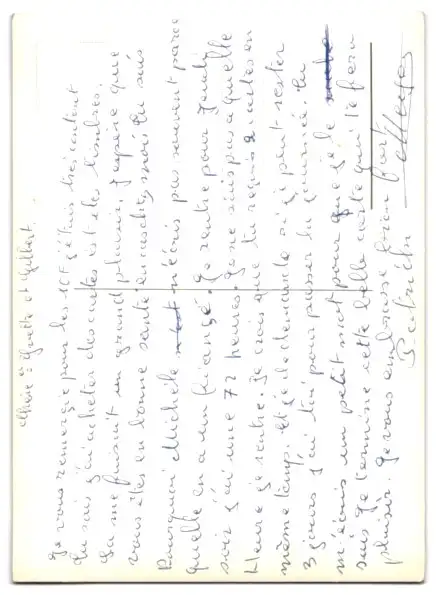 Chère = Yvette et Gilbert.
Je vous remercie pour les 10F j'étais très content
Tu sais j'ai acheter des cartes est des timbres.
Sa me faisait un grand plaisir. J'espère que
vous êtes en bonne santé. en ce moi, moi tu sais
Pourquoi Michèle n'écris pas souvent parce
quelle en a un fiançé. Je rentre pour Jeudi
soir j'ai une 72 heures. Je ne sais pas a quelle
Heure je rentre. Je crois que tu reçois 2 cartes en
même temp. Et je te demande si je peut rester
3 jours j'ai toi pour passer la journée. Tu
m'écris un petit mot pour que je le
sais Je termine cette belle carte qui te fera
plaisir. Je vous embrasse bien fort
Patrick